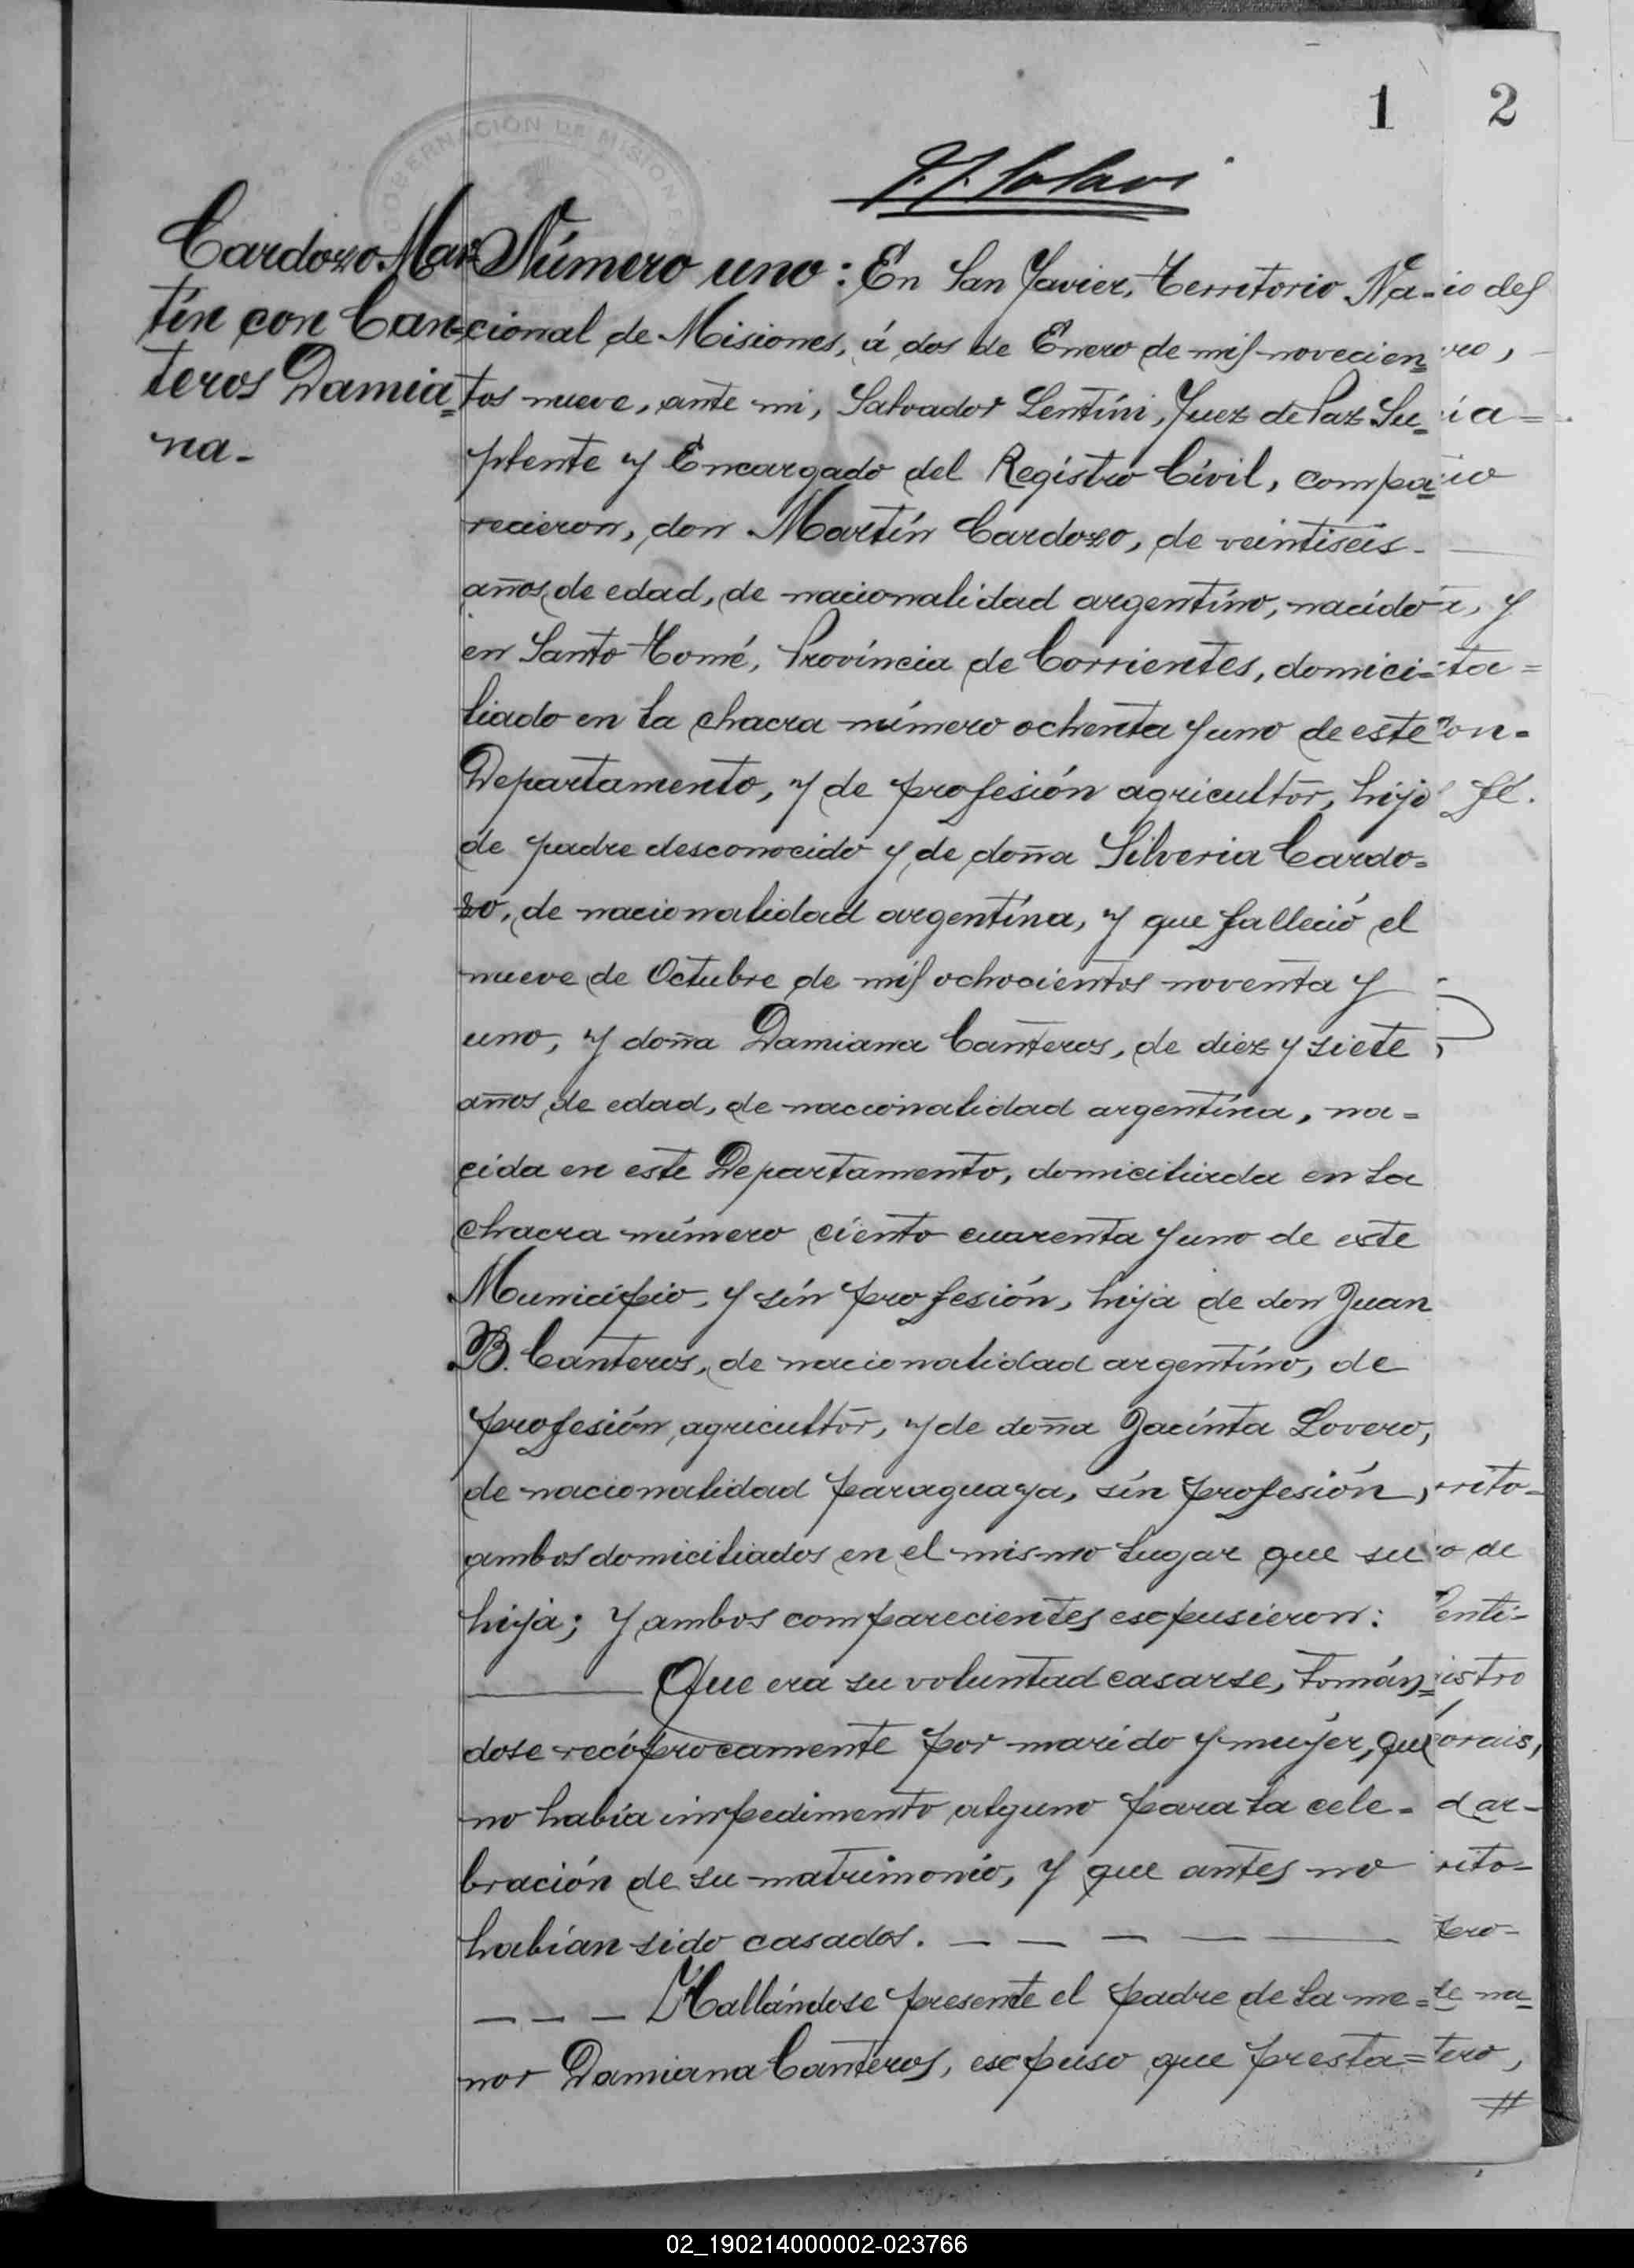 1
2
GOBERNACIÓN DE MISIONES
Cardozo Mar=
tín con Can=
teros Damia=
na.-
Número uno: En San Javier, Territorio Na-
cional de Misiones, á dos de Enero de mil novecien=
tos nueve, ante mi, Salvador Lentíni, Juez de Paz Su=
plente y Encargado del Registro Civil, compa=
recieron, don Martín Cardozo, de veintiseis-
años de edad, de nacionalidad argentino, nacido
en Santo Tomé, Província de Corrientes, domici=
liado en la chacra número ochenta y uno de este
Departamento, y de profesión agricultor, hijo
de padre desconocido y de doña Silveria Cardo=
zo, de nacionalidad argentina, y que falleció el
nueve de Octubre de mil ochocientos noventa y
uno, y doña Damiana Canteros, de diez y siete
años de edad, de nacionalidad argentina, na=
cida en este Departamento, domiciliada en la
chacra número ciento cuarenta y uno de este
Municipio, y sin profesión, hija de don Juan
B. Canteros, de nacionalidad argentino, de
profesión agricultor, y de doña Jacinta Lovero,
de nacionalidad paraguaya, sin profesión,
ambos domiciliados en el mismo lugar que su
hija; y ambos comparecientes expusieron:
Que era su voluntad casarse, tomán=
dose recíprocamente por marido y mujer, que
no había impedimento alguno para la cele=
bración de su matrimonio, y que antes no
habían sido casados.
Hallándose presente el padre de la me=
nor Damiana Canteros, expuso que presta=
io del
ia=
io
ta=
con-
fé.
rrito-
o de
Lenti-
istro
orais,
d ar-
rito-
tero-
te na=
tero,
02_190214000002-023766